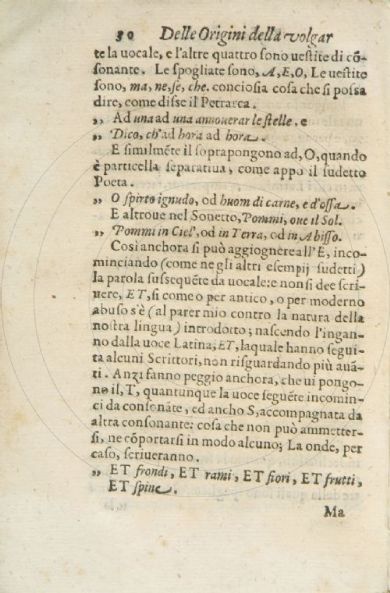 50 Delle Origini della volgar
te la uocale, e l'altre quattro sono uestite di cō-
sonante. Le spogliate sono, A, E, O, Le uestite
sono, ma, ne, se, che. conciosia cosa che si possa
dire, come disse il Petrarca.
„ Ad una ad una annouerar le stelle. e
„ Dico, ch'ad hora ad hora.
E similmēte il soprapongono ad, O, quando
è particella separatiua, come appo il sudetto
Poeta.
„ O spirto ignudo, od huom di carne, e d'ossa.
E altroue nel Sonetto, Pommi, oue il Sol.
„ Pommi in Ciel', od in Terra, od in Abisso.
Così anchora si può aggiognere all'E, inco-
minciando (come ne gli altri esempij sudetti)
la parola susseguēte da uocale: e non si dee scri-
uere, ET, si come o per antico, o per moderno
abuso s'è (al parer mio contro la natura della
nostra lingua) introdotto; nascendo l'ingan-
no dalla uoce Latina, ET, laquale hanno segui-
ta alcuni Scrittori, non risguardando più auā-
ti. Anzi fanno peggio anchora, che ui pongo-
no il, T, quantunque la uoce seguēte incomin-
ci da consonāte, ed ancho S, accompagnata da
altra consonante: cosa che non può ammetter-
si, ne cōportarsi in modo alcuno; La onde, per
caso, scriueranno.
„ ET frondi, ET rami, ET fiori, ET frutti,
ET spine.
Ma